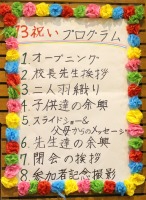 13祝いプログラム
1.オープニング
2.校長先生挨拶
3.二人羽織り
4.子供達の余興
5.スライドショー&
父母からのメッセージ
6.先生達の余興
7.閉会の挨拶
8.参加者記念撮影